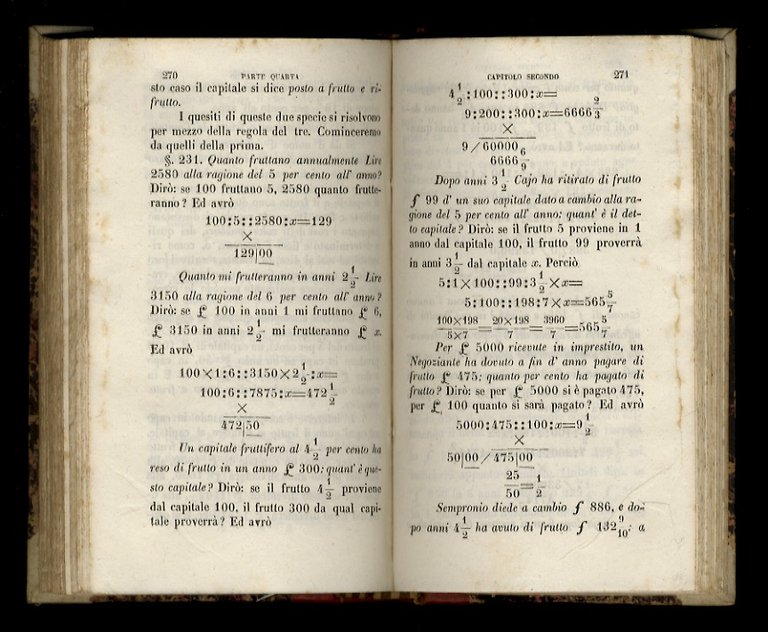 270 PARTE QUARTA
sto caso il capitale si dice posto a frutto e ri-
frutto.
I quesiti di queste due specie si risolvono
per mezzo della regola del tre. Cominceremo
da quelli della prima.
§. 231. Quanto fruttano annualmente Lire
2580 alla ragione del 5 per cento all' anno?
Dirò: se 100 fruttano 5, 2580 quanto frutte-
ranno? Ed avrò
100:5::2580:x=129
×
129|00
Quanto mi frutteranno in anni 2 1/2 Lire
3150 alla ragione del 6 per cento all' anno?
Dirò: se £ 100 in anni 1 mi fruttano £ 6,
£ 3150 in anni 2 1/2 mi frutteranno £ x.
Ed avrò
100×1:6::3150×2 1/2:x=
100:6::7875:x=472 1/2
×
472|50
Un capitale fruttifero al 4 1/2 per cento ha
reso di frutto in un anno £ 300: quant' è que-
sto capitale? Dirò: se il frutto 4 1/2 proviene
dal capitale 100, il frutto 300 da qual capi-
tale proverrà? Ed avrò
CAPITOLO SECONDO 271
4 1/2:100::300:x=
9:200::300:x=6666 2/3
×
9/60000
6666 6/9
Dopo anni 3 1/2 Cajo ha ritirato di frutto
ƒ 99 d' un suo capitale dato a cambio alla ra-
gione del 5 per cento all' anno: quant' è il det-
to capitale? Dirò: se il frutto 5 proviene in 1
anno dal capitale 100, il frutto 99 proverrà
in anni 3 1/2 dal capitale x. Perciò
5:1×100::99:3 1/2×x=
5:100::198:7×x=565 5/7
100×198/5×7=20×198/7=3960/7=565 5/7
Per £ 5000 ricevute in imprestito, un
Negoziante ha dovuto a fin d' anno pagare di
frutto £ 475; quanto per cento ha pagato di
frutto? Dirò: se per £ 5000 si è pagato 475,
per £ 100 quanto si sarà pagato? Ed avrò
5000:475::100:x=9 1/2
×
50|00/475|00
25/50=1/2
Sempronio diede a cambio ƒ 886, e do-
po anni 4 1/2 ha avuto di frutto ƒ 132 9/10: a